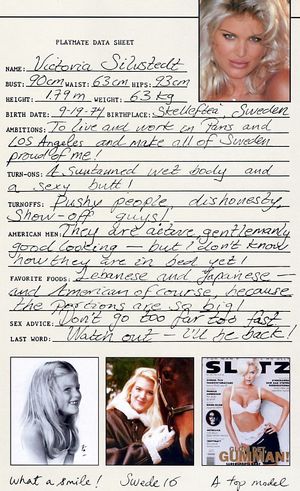 PLAYMATE DATA SHEET
NAME: Victoria Silvstedt
BUST: 90cm WAIST: 63cm HIPS: 93cm
HEIGHT: 1.79m WEIGHT: 63kg
BIRTH DATE: 9-19-74 BIRTHPLACE: Skellefteå, Sweden
AMBITIONS: To live and work in Paris and
Los Angeles and make all of Sweden
proud of me!
TURN-ONS: A suntanned wet body and
a sexy butt!
TURNOFFS: Pushy people, dishonesty,
show-off guys!
AMERICAN MEN: They are active, gentlemanly
good looking – but I don't know
how they are in bed yet!
FAVORITE FOODS: Lebanese and Japanese –
and American of course, because
the portions are so big!
SEX ADVICE: Don't go too far too fast.
LAST WORD: Watch out – I'll be back!
SLITZ
GUMMAN!
what a smile!
Swede 16
A top model